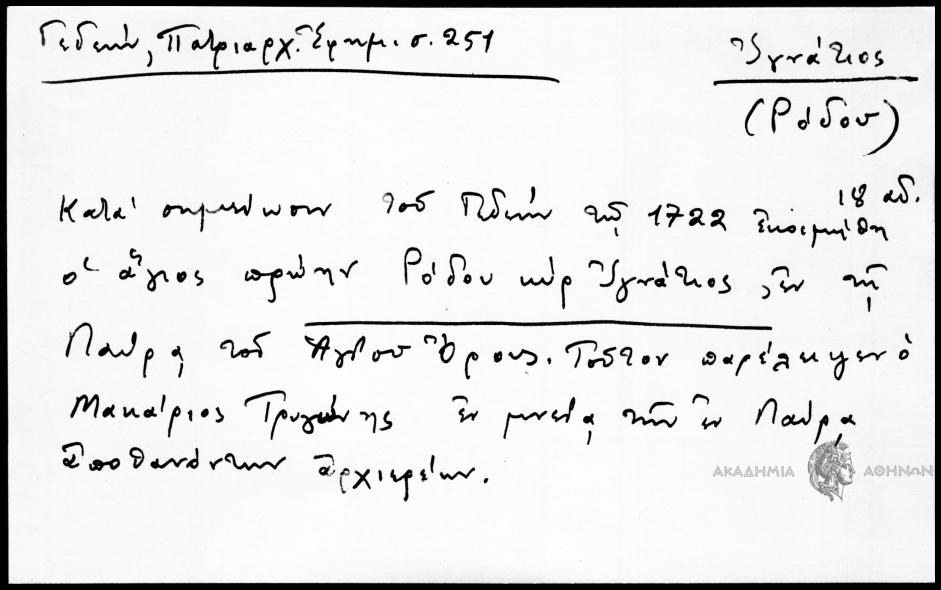 Γεδεών, Πατριαρχ. Ἐφημ. σ. 251
Ἰγνάτιος
(Ρόδου)
Κατὰ σημείωσιν τοῦ Γεδεών τῷ 1722 18 αὐ. ἐκοιμήθη
ὁ ἅγιος πρώην Ρόδου κύρ Ἰγνάτιος, ἐν τῇ
Λαύρᾳ τοῦ Ἁγίου Ὄρους. Τοῦτον παρέλειψεν ὁ
Μακάριος Τρυγώνης ἐν μνείᾳ τῶν ἐν Λαύρᾳ
ἀποθανόντων ἀρχιερέων.
ΑΚΑΔΗΜΙΑ ΑΘΗΝΩΝ